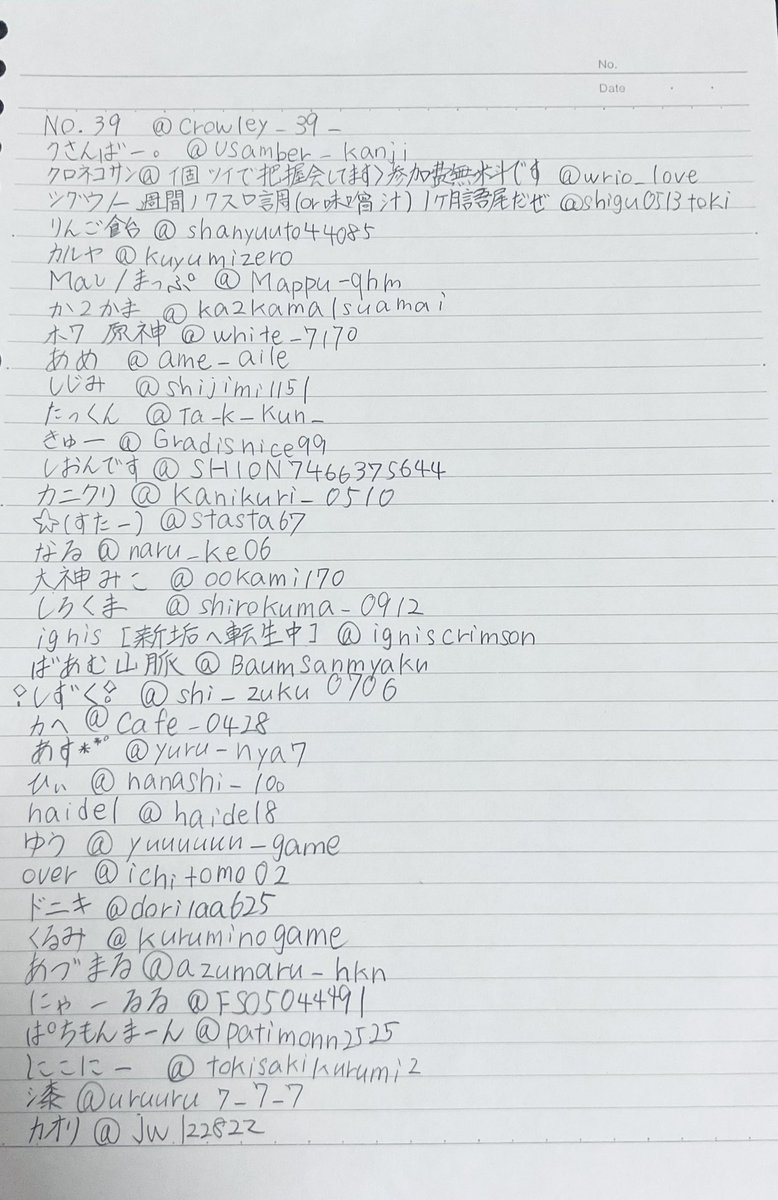 No.
Date
NO.39 @Crowley_39_
クさんばー。 @USamber_kanji
クロネコサン@イ固ツイで把握会してます〉参加費無料です @wrio_love
シグウ/一週間ノクスロ調(or味噌汁)1ヶ月語尾だぜ @shigu0513toki
りんご飴 @shanyuuto44085
カルヤ @kuyumizero
Mau/まっぷ @Mappu-qhm
か2かま @ka2kama1suamai
ホワ 原神 @white_7170
あめ @ame_aile
しじみ @shijimi1151
たっくん @Ta_k_Kun_
きゅー @Gradisnice99
しおんです @SHION7466375644
カニクリ @Kanikuri_0510
☆(すたー) @stasta67
なる @naru_ke06
大神みこ @ookami170
しろくま @shirokuma_0912
ignis [新垢へ転生中] @igniscrimson
ばあむ山脈 @Baumsanmyaku
しずく @shi_zuku0706
カヘ @Cafe_0428
あす**° @yuru_nya7
ひぃ @nanashi_100
haidel @haidel8
ゆう @yuuuuuun_game
over @ichitomo02
ドニキ @dorilaa625
くるみ @kuruminogame
あづまる @azumaru_hkn
にゃーるる @FS05044491
ぱちもんまーん @patimonn2525
にこにー @tokisakikurumi2
漆 @uruuru7_7_7
カオリ @jw122822